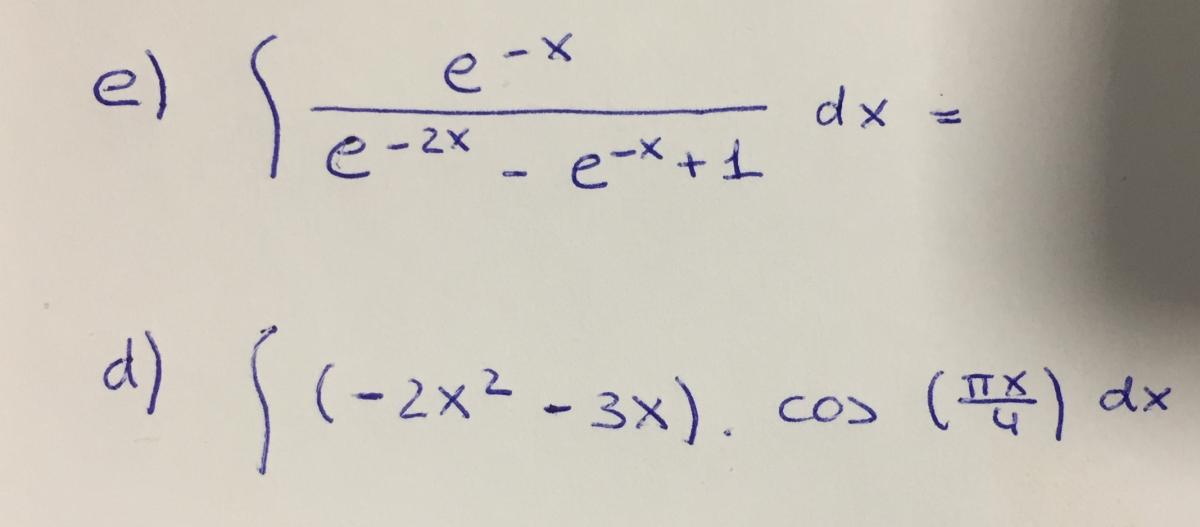 e) ∫ e^{-x} / (e^{-2x} - e^{-x} + 1) dx =
d) ∫ (-2x² - 3x) . cos (πx/4) dx